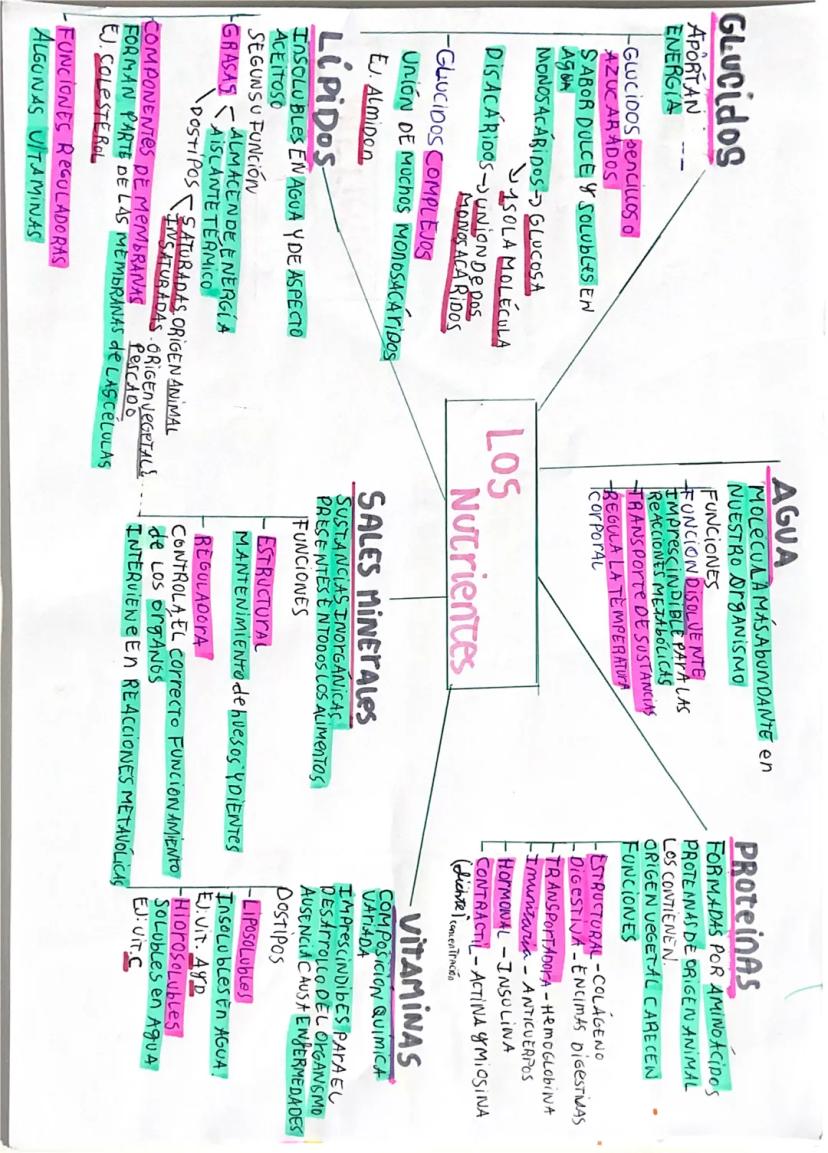 LOS
Nutrientes
GLUCIDOS
APORTAN
ENERGÍA
GLUCIDOS SENCILLOS O
AZUCARADOS
SABOR DULCE Y SOLUBLES EN
AGUA
MONOSACÁRIDOS → GLUCOSA
↘ 1 SOLA MOLÉCULA
DISACÁRIDOS → UNIÓN DE DOS
MONOSACÁRIDOS
GLUCIDOS COMPLEJOS
UNIÓN DE MUCHOS MONOSACÁRIDOS
EJ. ALMIDON
AGUA
MOLECULA MÁS ABUNDANTE en
NUESTRO ORGANISMO
FUNCIONES
FUNCIÓN DISOLVENTE
IMPRESCINDIBLE PARA LAS
REACCIONES METABÓLICAS
TRANSPORTE DE SUSTANCIAS
REGULA LA TEMPERATURA
CORPORAL
PROTEINAS
FORMADAS POR AMINOÁCIDOS
PROTEINAS DE ORIGEN ANIMAL
LOS CONTIENEN.
ORIGEN VEGETAL CARECEN
FUNCIONES
ESTRUCTURAL - COLÁGENO
DIGESTIVA - ENCIMAS DIGESTIVAS
TRANSPORTADORA - HEMOGLOBINA
Inmunitaria - ANTICUERPOS
HORMONAL - INSULINA
CONTRACTIL - ACTINA Y MIOSINA
LÍPIDOS
INSOLUBLES EN AGUA Y DE ASPECTO
ACEITOSO
SEGUN SU FUNCIÓN
GRASAS < ALMACEN DE ENERGÍA
AISLANTE TÉRMICO
DOS TIPOS < SATURADAS ORIGEN ANIMAL
INSATURADAS. ORIGEN VEGETAL Y
PESCADO
COMPONENTES DE MEMBRANAS
FORMAN PARTE DE LAS MEMBRANAS de LAS CÉLULAS
EJ. COLESTEROL
FUNCIONES REGULADORAS
ALGUNAS VITAMINAS
SALES MINERALES
SUSTANCIAS INORGÁNICAS
PRESENTES EN TODOS LOS ALIMENTOS
FUNCIONES
ESTRUCTURAL
MANTENIMIENTO de huesos Y DIENTES
REGULADORA
CONTROLA EL CORRECTO FUNCIONAMIENTO
de LOS ORGANOS
INTERVIENE EN REACCIONES METAVÓLICAS
VITAMINAS
COMPOSICIÓN QUÍMICA
VARIADA
IMPRESCINDIBLES PARA EL
DESARROLLO DEL ORGANISMO
AUSENCIA CAUSA ENFERMEDADES
DOS TIPOS
LIPOSOLUBLES
INSOLUBLES EN AGUA.
EJ. Vit. A y D
HIDROSOLUBLES
SOLUBLES en AGUA
EJ: Vit. C